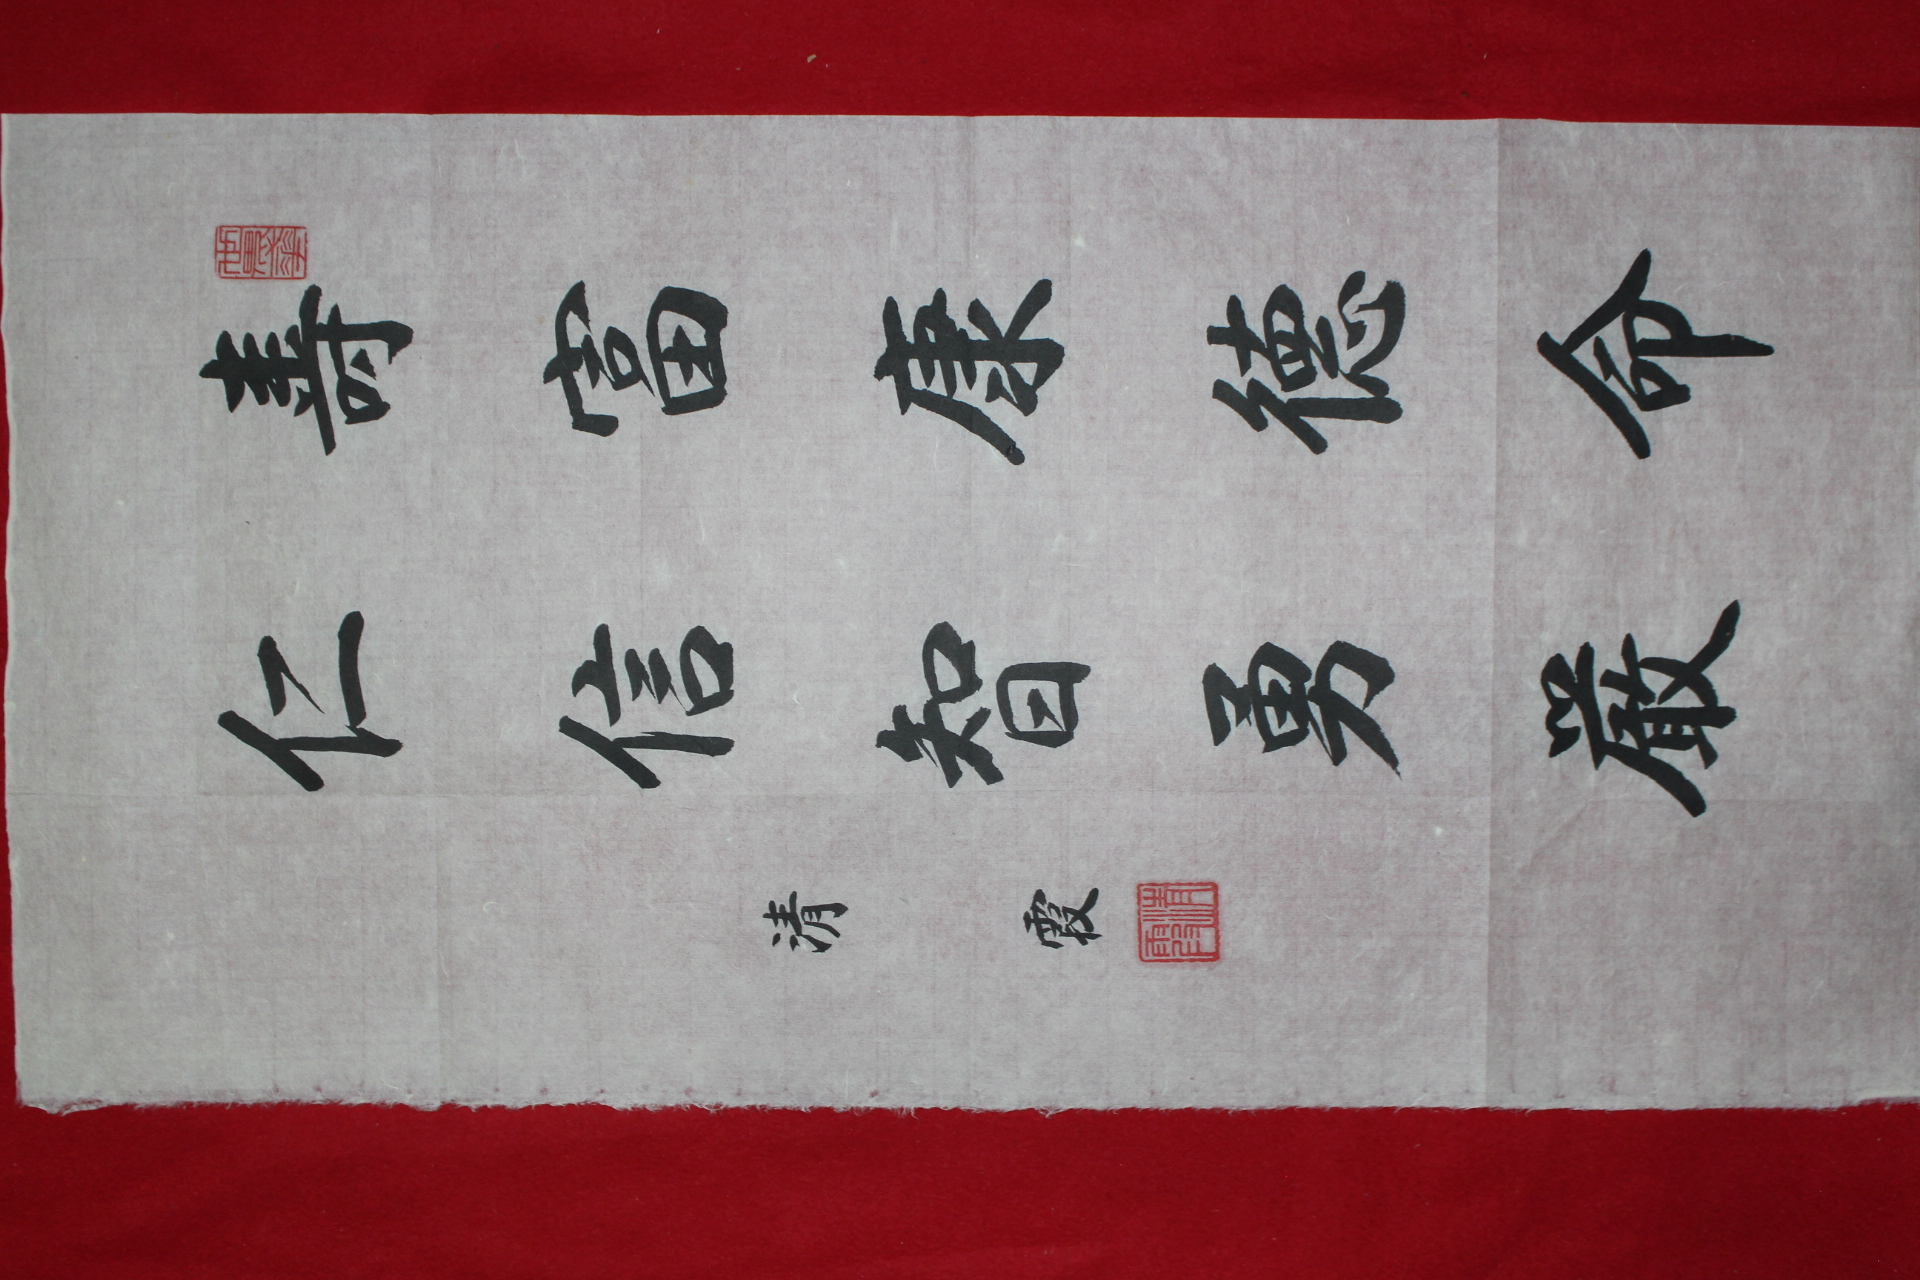 壽富康德命
仁信智勇厳
清霞
清霞